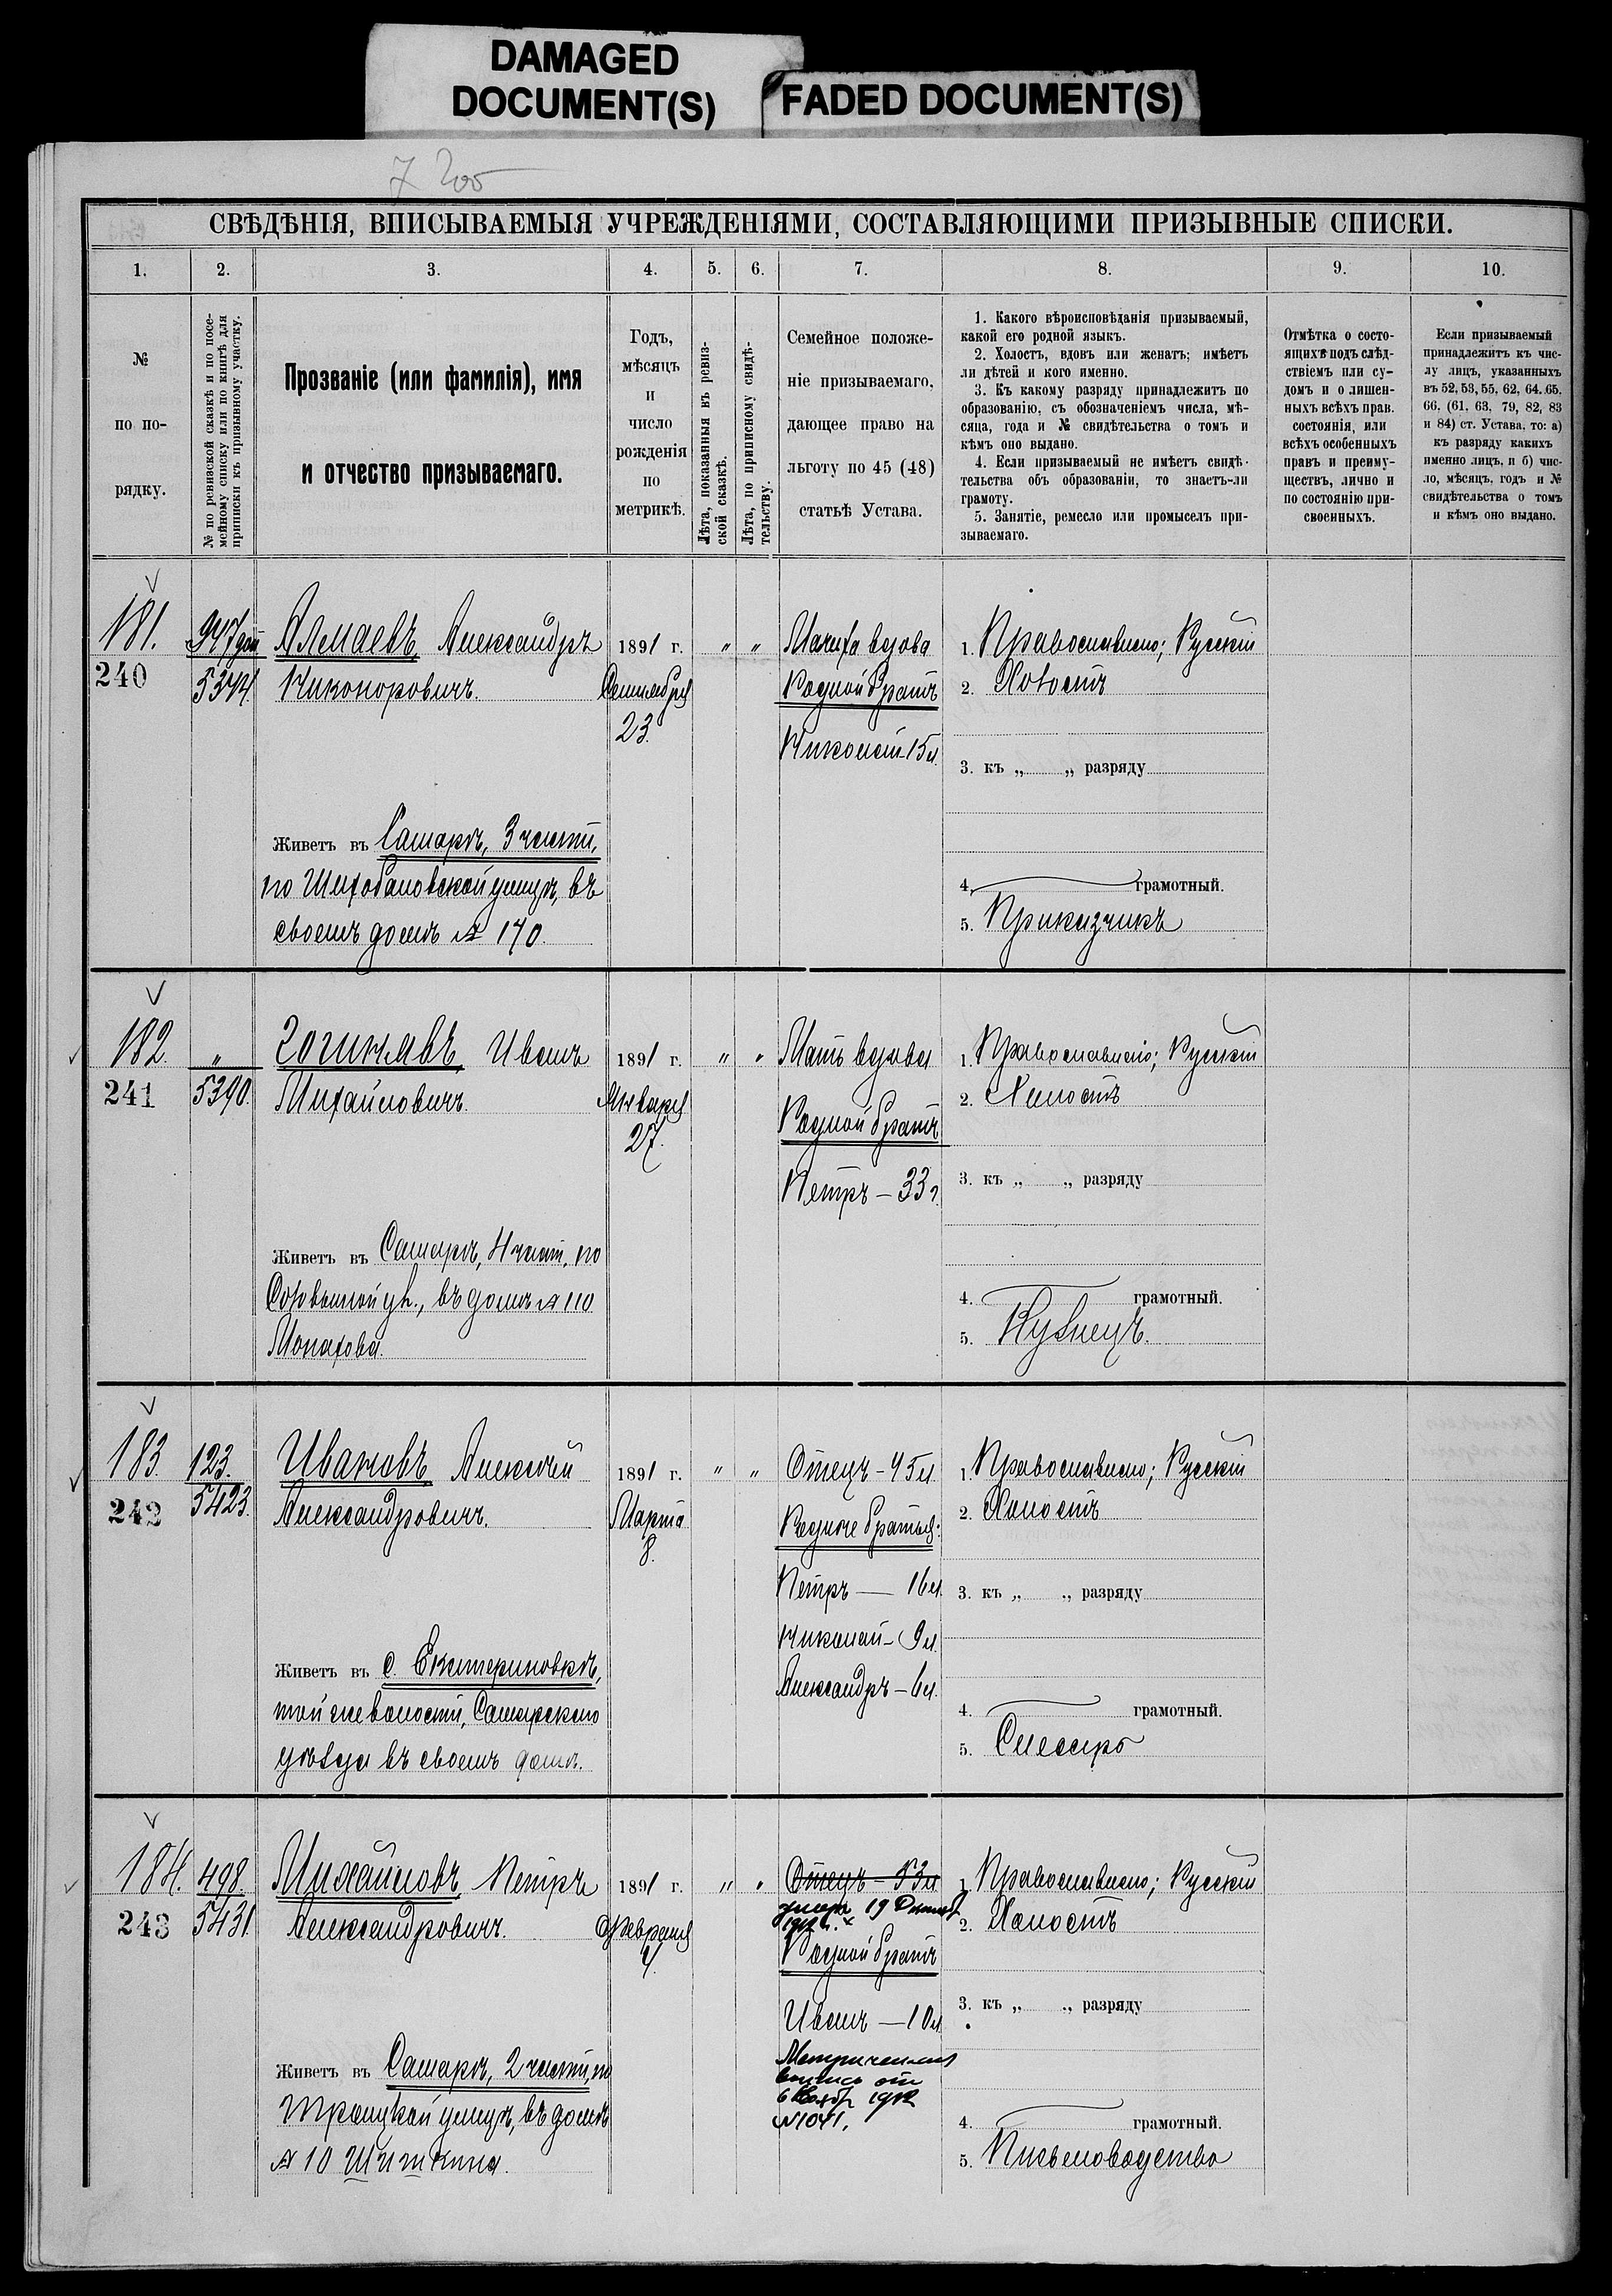 DAMAGED
DOCUMENT(S)
FADED DOCUMENT(S)
СВѢДѢНІЯ, ВПИСЫВАЕМЫЯ УЧРЕЖДЕНІЯМИ, СОСТАВЛЯЮЩИМИ ПРИЗЫВНЫЕ СПИСКИ.
1. 2. 3. 4. 5. 6. 7. 8. 9. 10.
№
по по-
рядку.
№ по ревизской сказкѣ и по посе-
мейному списку или по книгѣ для
приписки къ призывному участку.
Прозваніе (или фамилія), имя
и отчество призываемаго.
Годъ,
мѣсяцъ
и
число
рожденія
по
метрикѣ.
Лѣта, показанныя въ ревиз-
ской сказкѣ.
Лѣта, по приписному свидѣ-
тельству.
Семейное положе-
ніе призываемаго,
дающее право на
льготу по 45 (48)
статьѣ Устава.
1. Какого вѣроисповѣданія призываемый,
какой его родной языкъ.
2. Холостъ, вдовъ или женатъ; имѣетъ
ли дѣтей и кого именно.
3. Къ какому разряду принадлежитъ по
образованію, съ обозначеніемъ числа, мѣ-
сяца, года и № свидѣтельства о томъ и
кѣмъ оно выдано.
4. Если призываемый не имѣетъ свидѣ-
тельства объ образованіи, то знаетъ-ли
грамоту.
5. Занятіе, ремесло или промыселъ при-
зываемаго.
Отмѣтка о состо-
ящихъ подъ слѣд-
ствіемъ или су-
домъ и о лишен-
ныхъ всѣхъ прав.
состоянія, или
всѣхъ особенныхъ
правъ и преиму-
ществъ, лично и
по состоянію при-
своенныхъ.
Если призываемый
принадлежитъ къ чис-
лу лицъ, указанныхъ
въ 52, 53, 55, 62, 64, 65,
66, (61, 63, 79, 82, 83
и 84) ст. Устава, то: а)
къ разряду какихъ
именно лицъ, и б) чис-
ло, мѣсяцъ, годъ и №
свидѣтельства о томъ
и кѣмъ оно выдано.
181.
240
947
5374.
Алмаевъ, Александръ
Никоноровичъ.
Живетъ въ Самарѣ, 3 части,
по Шихобаловской улицѣ, въ
своемъ домѣ № 170.
1891 г.
Сентября
23.
" "
Мачиха вдова
Родной братъ
Николай - 15 л.
1. Православно; Русскій
2. Холостъ
3. къ „ „ разряду
4. грамотный.
5. Приказчикъ
182.
241
"
5390.
Логиновъ, Иванъ
Михайловичъ.
Живетъ въ Самарѣ, 4 части, по
ул., въ домѣ № 110
Монахова.
1891 г.
Января
27.
" "
Мать вдова
Родной братъ
Петръ - 33 г.
1. Православно; Русскій
2. Холостъ
3. къ „ „ разряду
4. грамотный.
5. Кузнецъ.
183.
242
123.
5423.
Ивановъ, Алексѣй
Александровичъ.
Живетъ въ с. Екатериновкѣ,
той же волости, Самарскаго
уѣзда въ своемъ домѣ.
1891 г.
Марта
8.
" "
Отецъ - 45 л.
Родные братья:
Петръ — 16 л.
Николай - 9 л.
Александръ - 6 л.
1. Православно; Русскій
2. Холостъ
3. къ „ „ разряду
4. грамотный.
5. Слесарь
184.
243
498.
5431.
Михайловъ, Петръ
Александровичъ.
Живетъ въ Самарѣ, 2 части, по
Троицкой улицѣ, въ домѣ
№ 10 Шишкина.
1891 г.
Февраля
4.
" "
Отецъ - 53 л
умеръ 19
1912 г.
Родной братъ
Иванъ — 10 л
Метрическая
выпись от
6 Ноябр 1912
№ 1041.
1. Православно; Русскій
2. Холостъ
3. къ „ „ разряду
4. грамотный.
5. Письмоводство